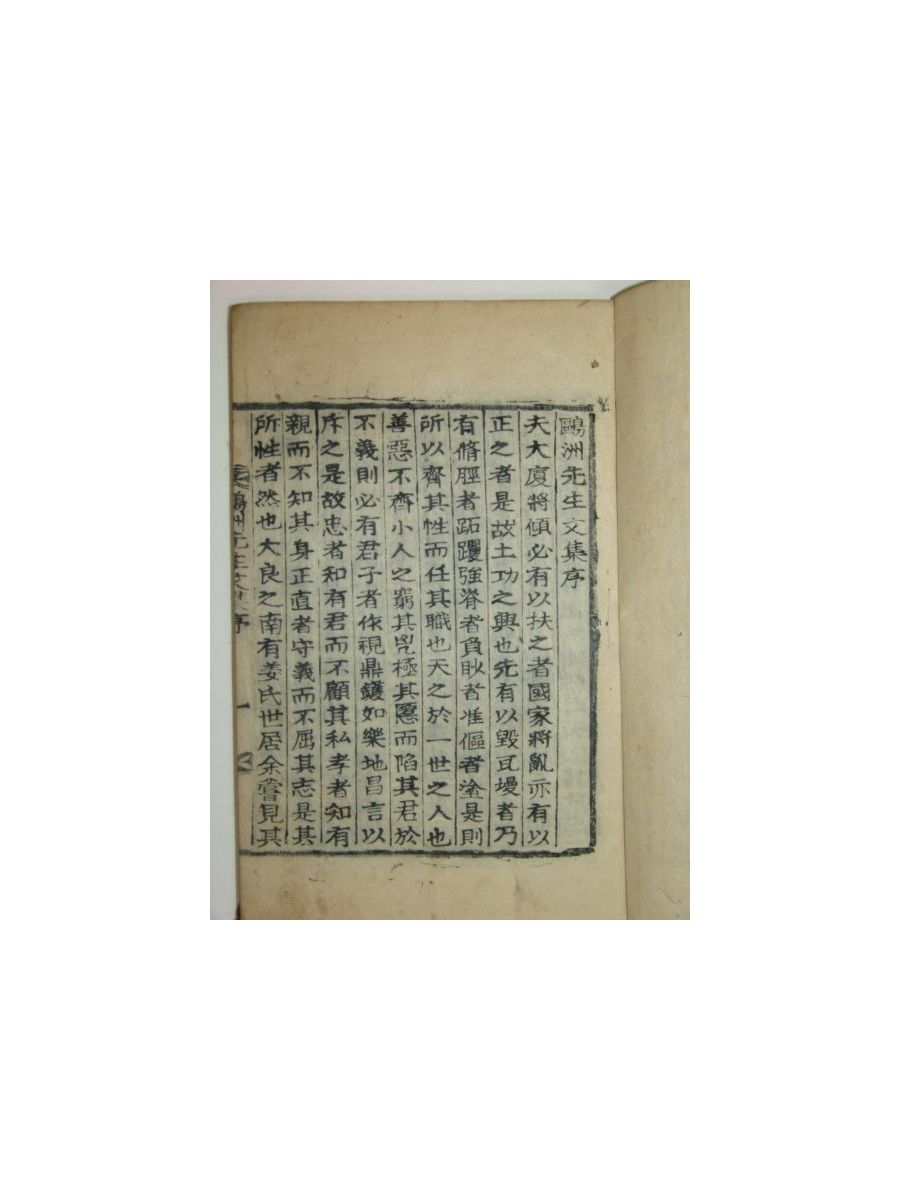 鷗洲先生文集序
夫大廈將傾必有以扶之者國家將亂亦有以
正之者是故土功之興也先有以毀瓦墁者乃
有脩脛者跖钁強脊者負眇者准傴者塗是則
所以齊其性而任其職也天之於一世之人也
善惡不齊小人之窮其兇極其惡而陷其君於
不義則必有君子者依視鼎鑊如樂地昌言以
斥之是故忠者知有君而不顧其私孝者知有
親而不知其身正直者守義而不屈其志是其
所性者然也大良之南有姜氏世居余嘗見其
鷗洲先生文集序 一